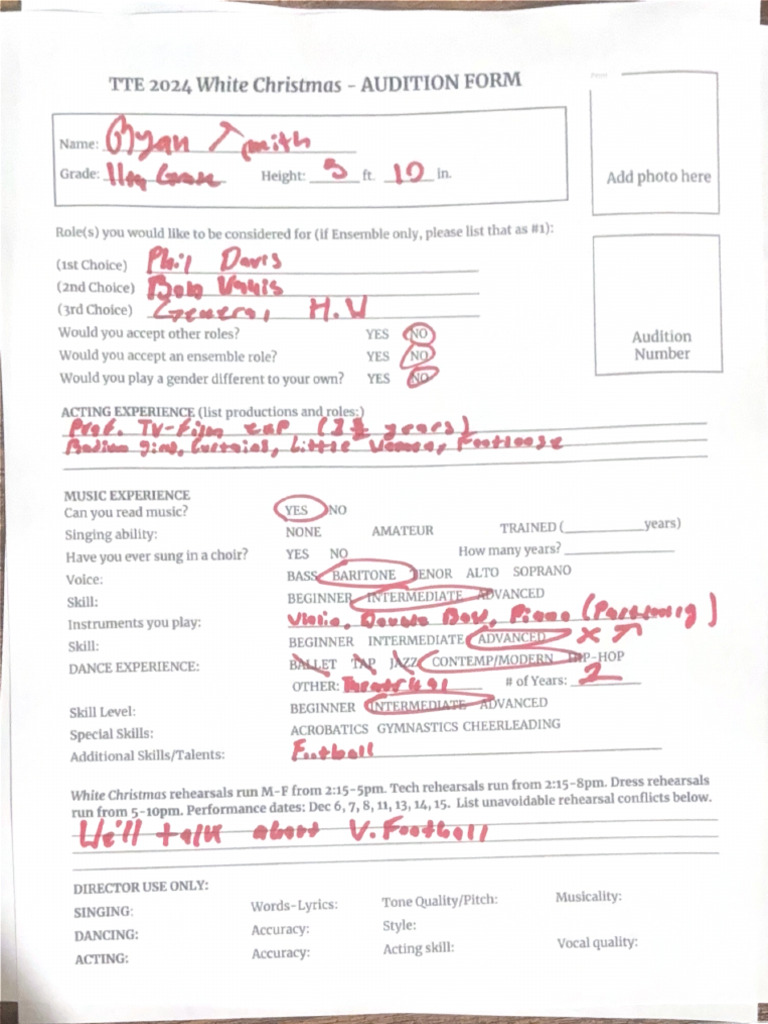 TTE 2024 White Christmas - AUDITION FORM
Name: Ryan Smith
Grade: 11th Grade Height: 5 ft. 10 in.
Add photo here
Role(s) you would like to be considered for (if Ensemble only, please list that as #1):
(1st Choice) Phil Davis
(2nd Choice) Bob
(3rd Choice) General H.W
Would you accept other roles? YES NO
Would you accept an ensemble role? YES NO
Would you play a gender different to your own? YES NO
Audition
Number
ACTING EXPERIENCE (list productions and roles:)
Prof. TV-film exp (2½ years)
Curtains, Little Women, Footloose
MUSIC EXPERIENCE
Can you read music? YES NO
Singing ability: NONE AMATEUR TRAINED (________years)
Have you ever sung in a choir? YES NO How many years?
Voice: BASS BARITONE TENOR ALTO SOPRANO
Skill: BEGINNER INTERMEDIATE ADVANCED
Instruments you play: Violin, Double Bass, Piano
Skill: BEGINNER INTERMEDIATE ADVANCED
DANCE EXPERIENCE: BALLET TAP JAZZ CONTEMP/MODERN HIP-HOP
OTHER: Theatrical # of Years: 2
Skill Level: BEGINNER INTERMEDIATE ADVANCED
Special Skills: ACROBATICS GYMNASTICS CHEERLEADING
Additional Skills/Talents: Football
White Christmas rehearsals run M-F from 2:15-5pm. Tech rehearsals run from 2:15-8pm. Dress rehearsals
run from 5-10pm. Performance dates: Dec 6, 7, 8, 11, 13, 14, 15. List unavoidable rehearsal conflicts below.
We'll talk about V. Football
DIRECTOR USE ONLY:
SINGING: Words-Lyrics: Tone Quality/Pitch: Musicality:
DANCING: Accuracy: Style:
ACTING: Accuracy: Acting skill: Vocal quality: